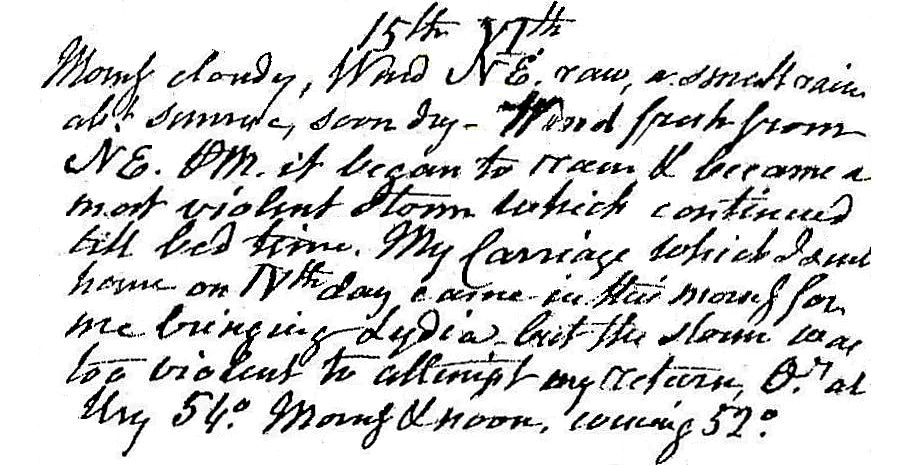 15th VIth
Morng cloudy, Wind NE. raw, a small rain
abt sunrise, soon dry - Wind fresh from
NE. PM. it began to rain & became a
most violent Storm which continued
till bed time. My Carriage which I sent
home on IVth day came in this morng for
me bringing Lydia but the storm was
too violent to attempt my return,
54° Morng & noon, evening 52°.